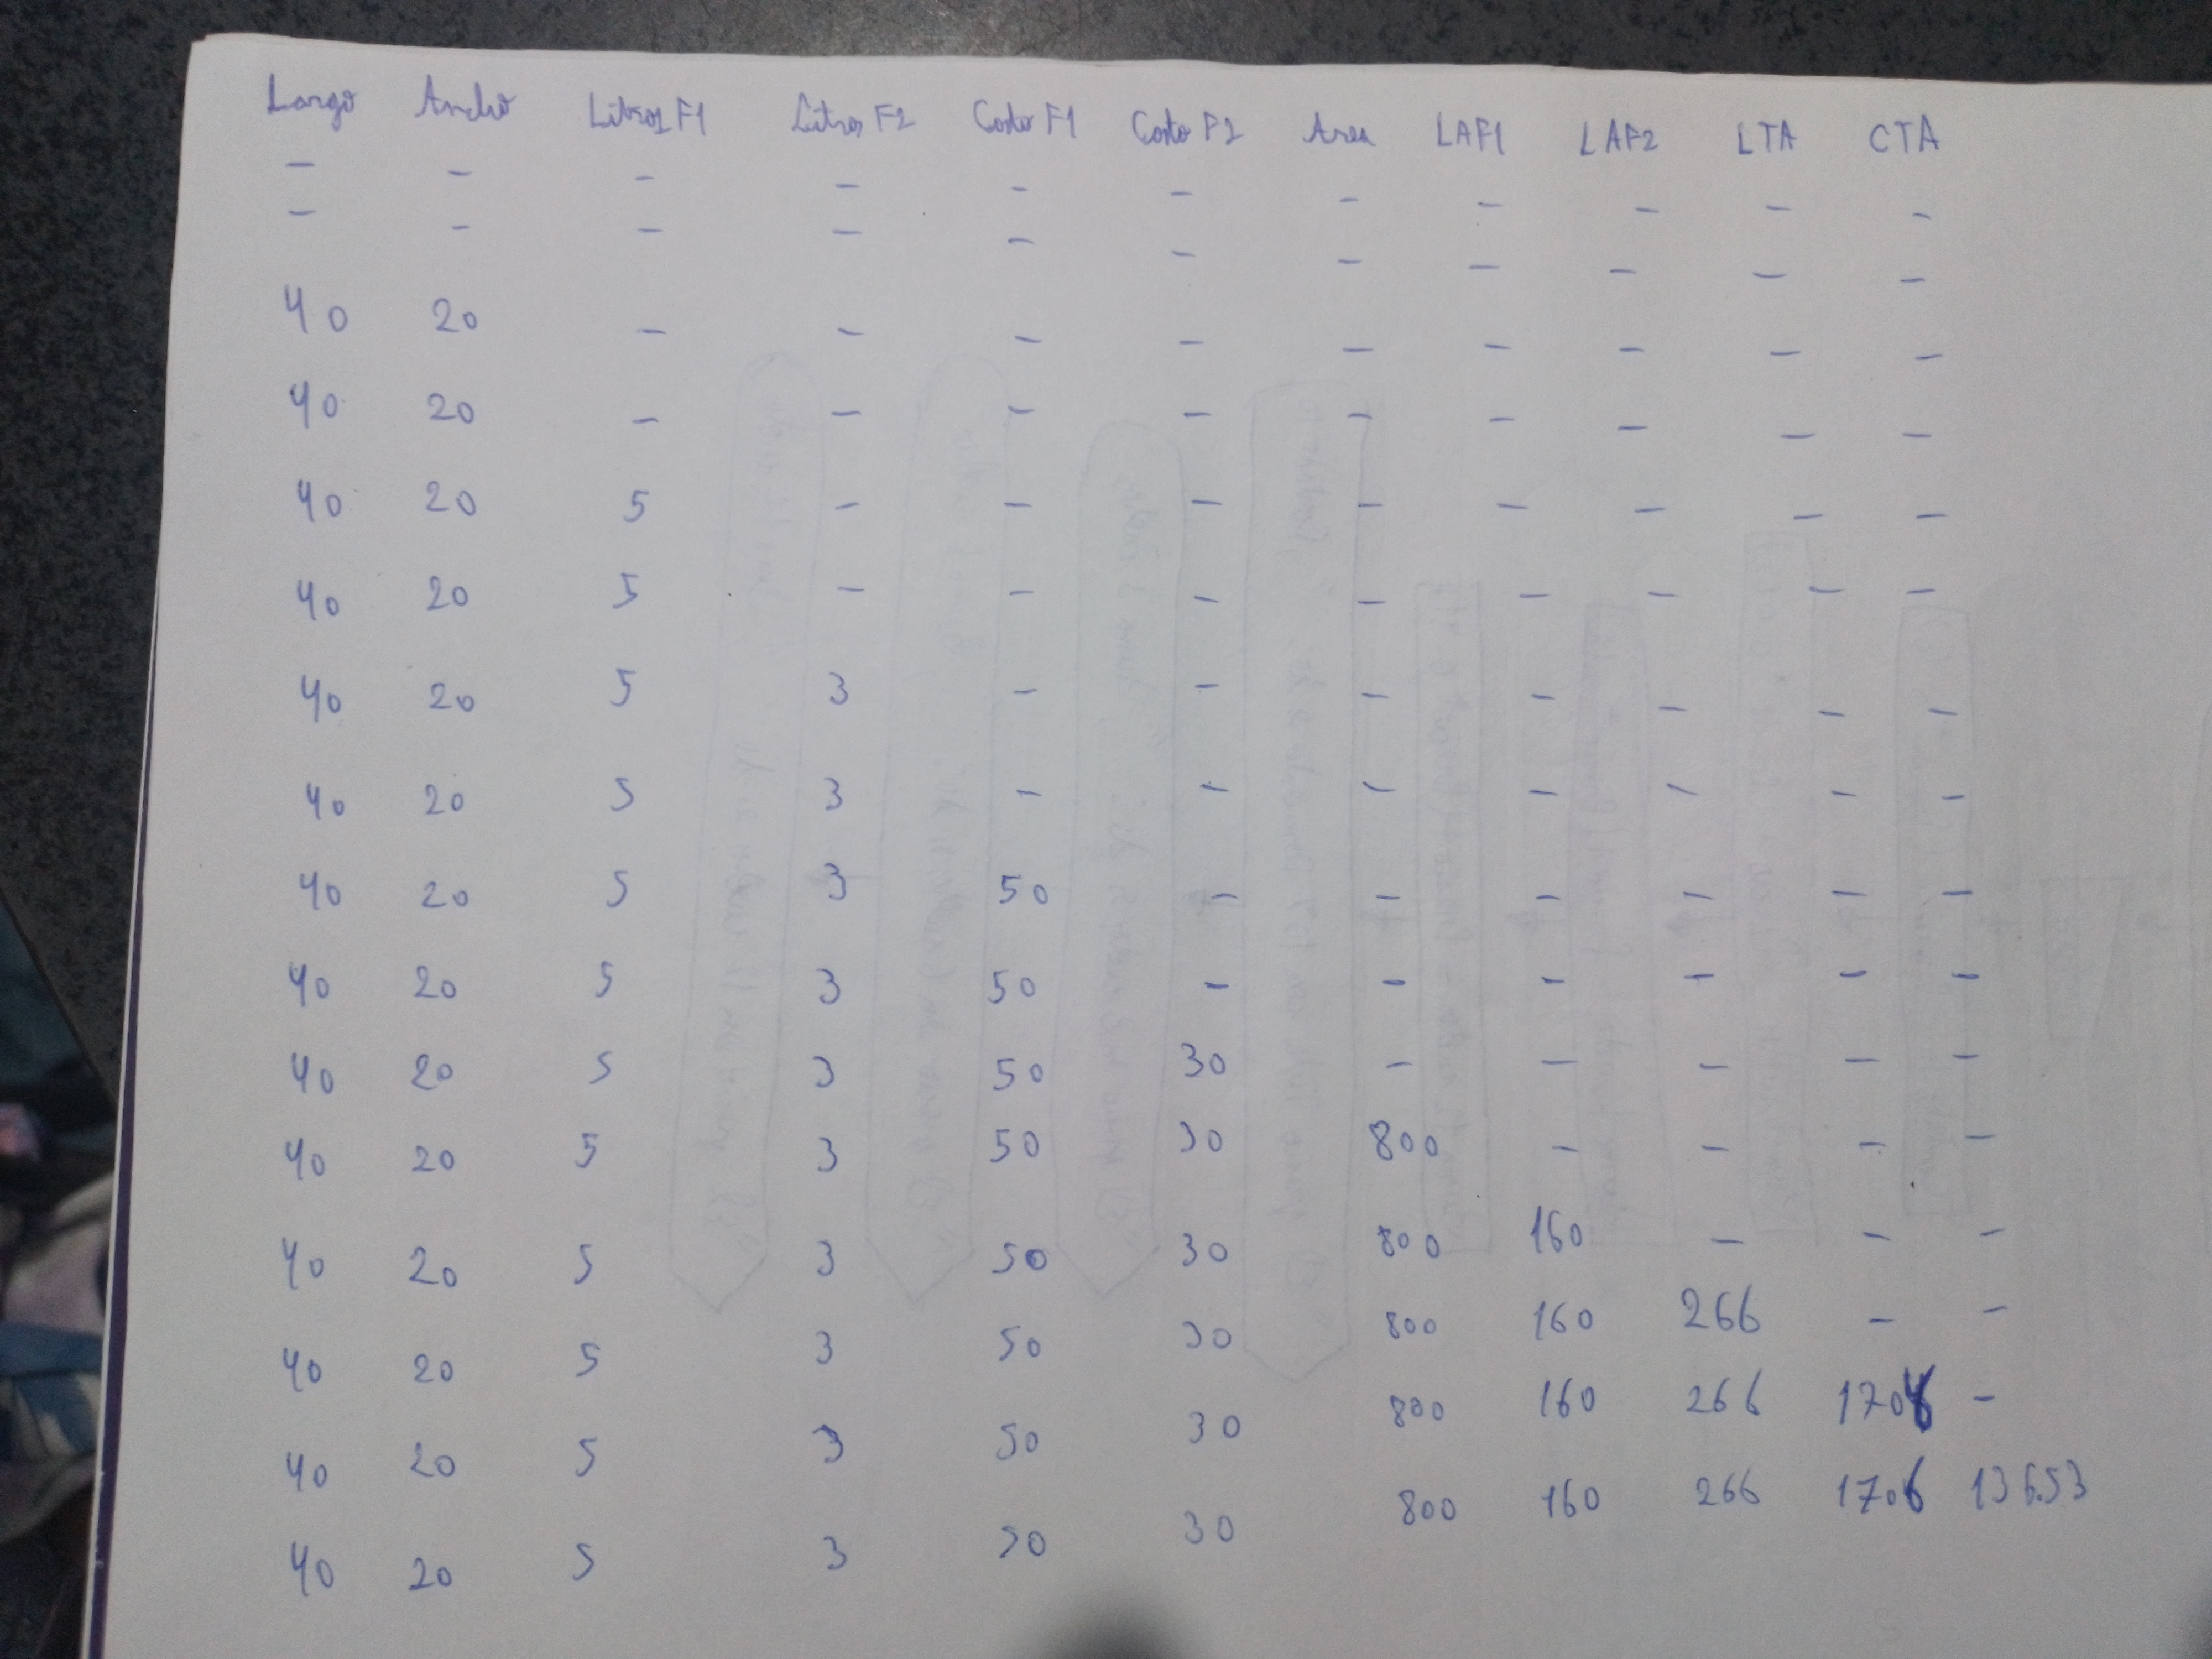 Largo Ancho Litros F1 Litros F2 Costo F1 Costo F2 Area LAF1 LAF2 LTA CTA
- - - - - - - - - - -
- - - - - - - - - - -
40 20 - - - - - - - - -
40 20 - - - - - - - - -
40 20 5 - - - - - - - -
40 20 5 - - - - - - - -
40 20 5 3 - - - - - - -
40 20 5 3 - - - - - - -
40 20 5 3 50 - - - - - -
40 20 5 3 50 - - - - - -
40 20 5 3 50 30 - - - - -
40 20 5 3 50 30 800 - - - -
40 20 5 3 50 30 800 160 - - -
40 20 5 3 50 30 800 160 266 - -
40 20 5 3 50 30 800 160 266 1706 -
40 20 5 3 50 30 800 160 266 1706 13653